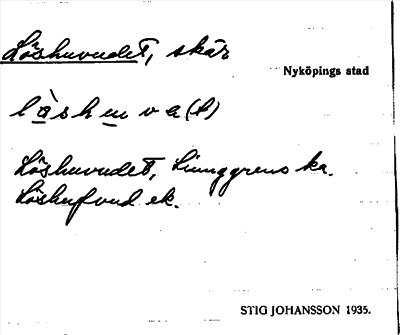 Löshuvudet, skär
Nyköpings stad
lö̀shuva(t)
Löshuvudet, Ljunggrens ka.
Löshufvud ek.
STIG JOHANSSON 1935.